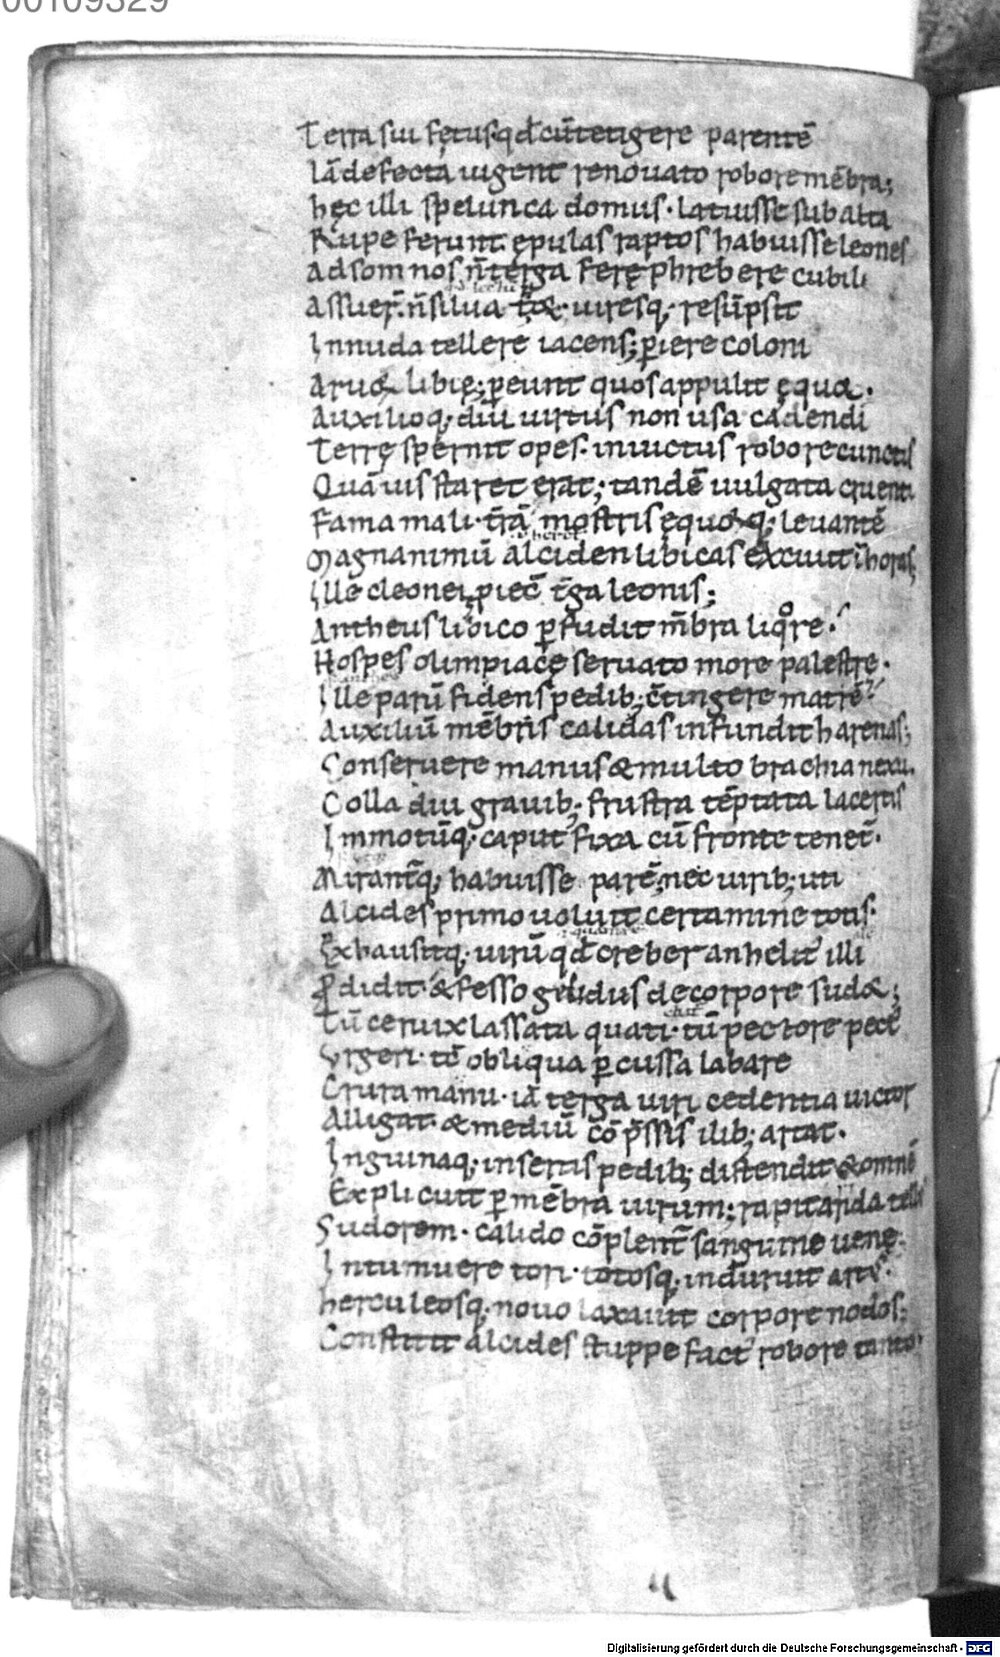 00109329
Terra sui fętusqd̄ cū tetigere parentē
Iā defecta uigent renouato robore mēbra;
hęc illi spelunca domus. Latuisse sub alta
Rupe ferunt. ępulas raptos habuisse leones
Ad somnos ñ terga ferę phrebere cubili
Assuer̄. ñ silua tor&. uiresq; resūpsit
In nuda tellere iacens; ꝑiere coloni
Aruor libię; ꝑeunt quos appulit ęquor.
Auxilioq; diū uirtus non usa cadendi
Terrę spernit opes. inuictus robore cunctis
Quāuis staret erat; tandē uulgata cruenti
Fama mali. t̄rā mostris ęquorq; leuantē
Magnanimū alciden libicas exciuit ī horas;
Ille cleonei ꝓiec̄ t̄ga leonis;
Antheus libico ꝑfudit m̄bra liqore.
Hospes olimpiacę seruato more palestre.
Ille parū fidens pedib; c̄tingere matrē
Auxiliū mēbris calidas infundit harenas;
Conseruere manus & multo brachia nexu.
Colla diu grauib; frustra tēptata lacertis
Immotūq; caput fixa cū fronte tenet̄.
Mirant̄q; habuisse parē; nec uirib; uti
Alcides primo uoluit certamine totis.
Exhausitq; uirū qd̄ creber anhelit' illi
Prodidit. & fesso gelidus de corpore sudor;
Tū ceruix lassata quati. tū pectore pect'
Vrgeri. tc̄ obliqua ꝑcussa labare
Crura manu. iā terga uiri cedentia uictor
Alligat. & mediū cō p̄ssis ilib; artat.
Inguinaq; insertis pedib; distendit & omnē
Explicuit ꝑ mēbra uirum; rapit arida tellus
Sudorem. calido cōplent̄ sanguine uenę.
Intumuere tori. totosq; induruit art'.
herculeosq; nouo laxauit corpore nodos;
Constitit alcides stuppefact' robore tanto.
Digitalisierung gefördert durch die Deutsche Forschungsgemeinschaft - DFG